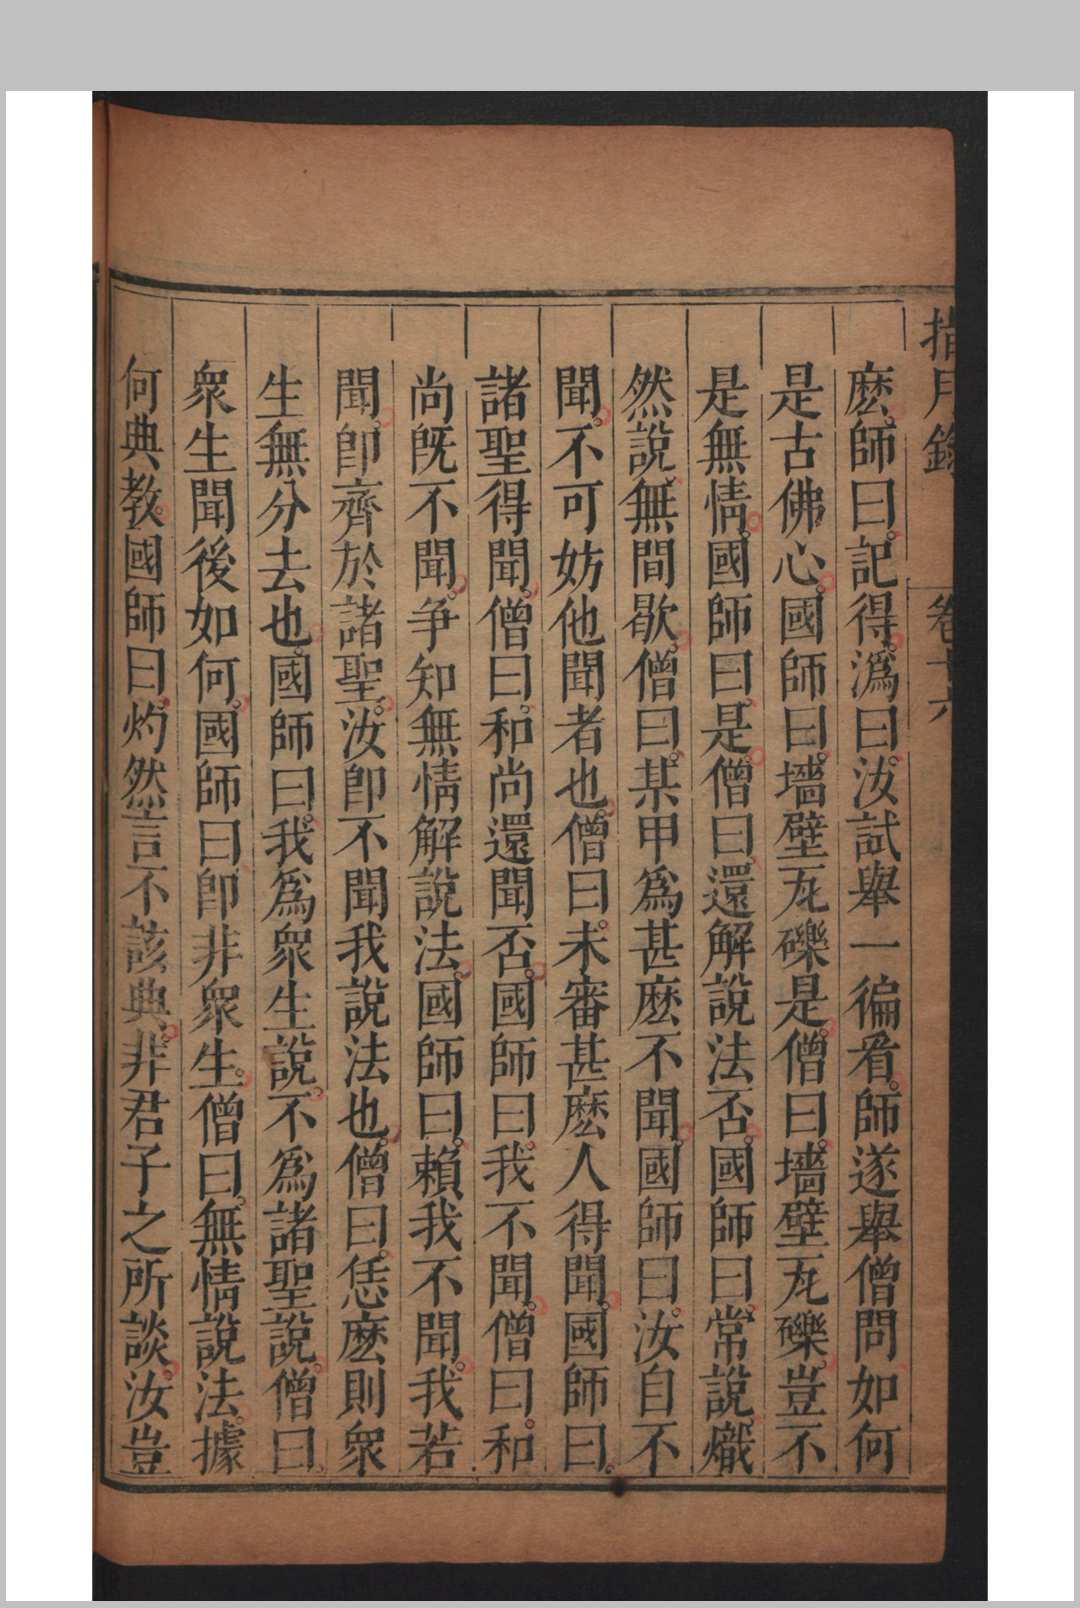 指月錄 卷十六
麽師曰記得溈曰汝試舉一徧看師遂舉僧問如何
是古佛心國師曰墻壁瓦礫是僧曰墻壁瓦礫豈不
是無情國師曰是僧曰還解說法否國師曰常說熾
然說無間歇僧曰某甲爲甚麽不聞國師曰汝自不
聞不可妨他聞者也僧曰未審甚麽人得聞國師曰
諸聖得聞僧曰和尚還聞否國師曰我不聞僧曰和
尚旣不聞爭知無情解說法國師曰賴我不聞我若
聞卽齊於諸聖汝卽不聞我說法也僧曰恁麽則衆
生無分去也國師曰我爲衆生說不爲諸聖說僧曰
衆生聞後如何國師曰卽非衆生僧曰無情說法據
何典教國師曰灼然言不該典非君子之所談汝豈